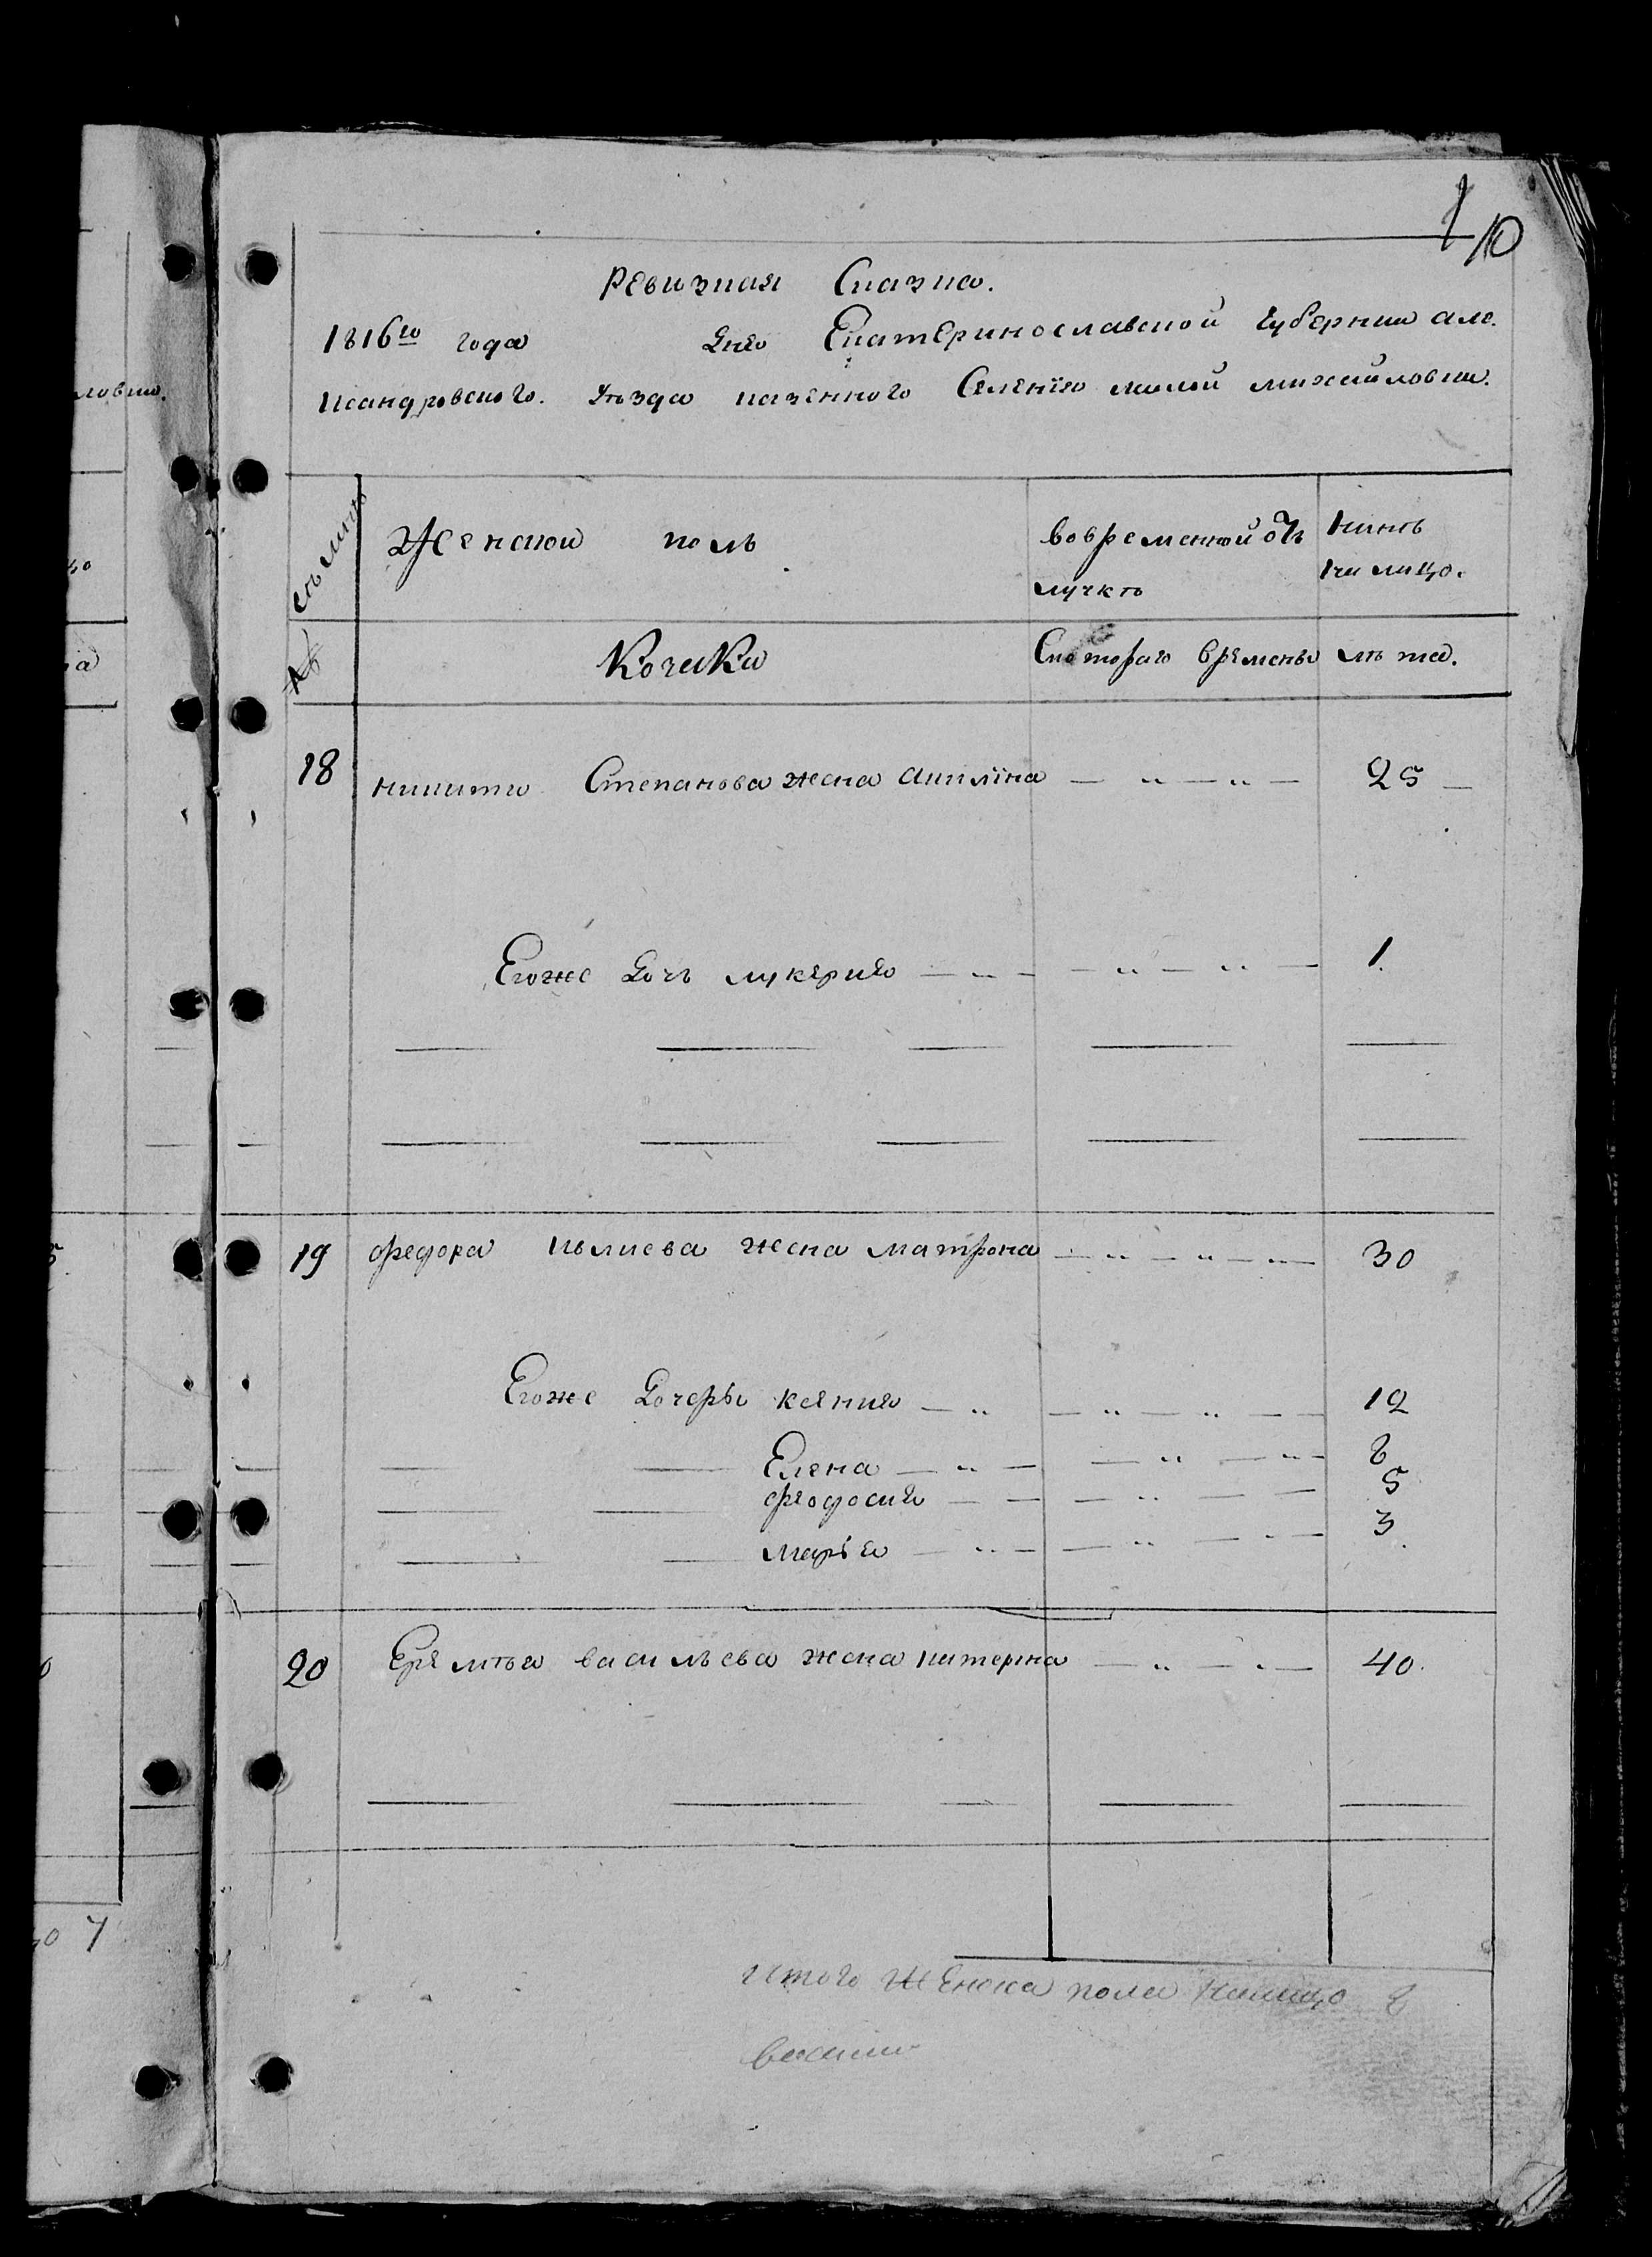 10
Ревизная Сказка.
1816го года Дня Екатеринославской губернии але:
ксандровского. Уѣзда казенного Селения малой михайловки.
семьи
Женской полъ
вовременной отлучкѣ
нынѣ на лицо.
№
Кочака
Скотораго времены
лѣта.
18 никиты Степанова жена Акилина — „ — „ — 25 —
Егоже Дочь лукерия — „ — — „ — „ — 1.
19 федора иовлиева жена матрона — „ — „ — „ — 30
Егоже Дочеры ксения — „ — „ — „ — — 12
Елена — „ — — „ — „ — 8
феодосия — — — „ — — 5
марья — „ — — „ — „ — 3
20 Еремѣя васильева жена катерина — „ — „ — 40.
итого женска пола налицо 8
40 7